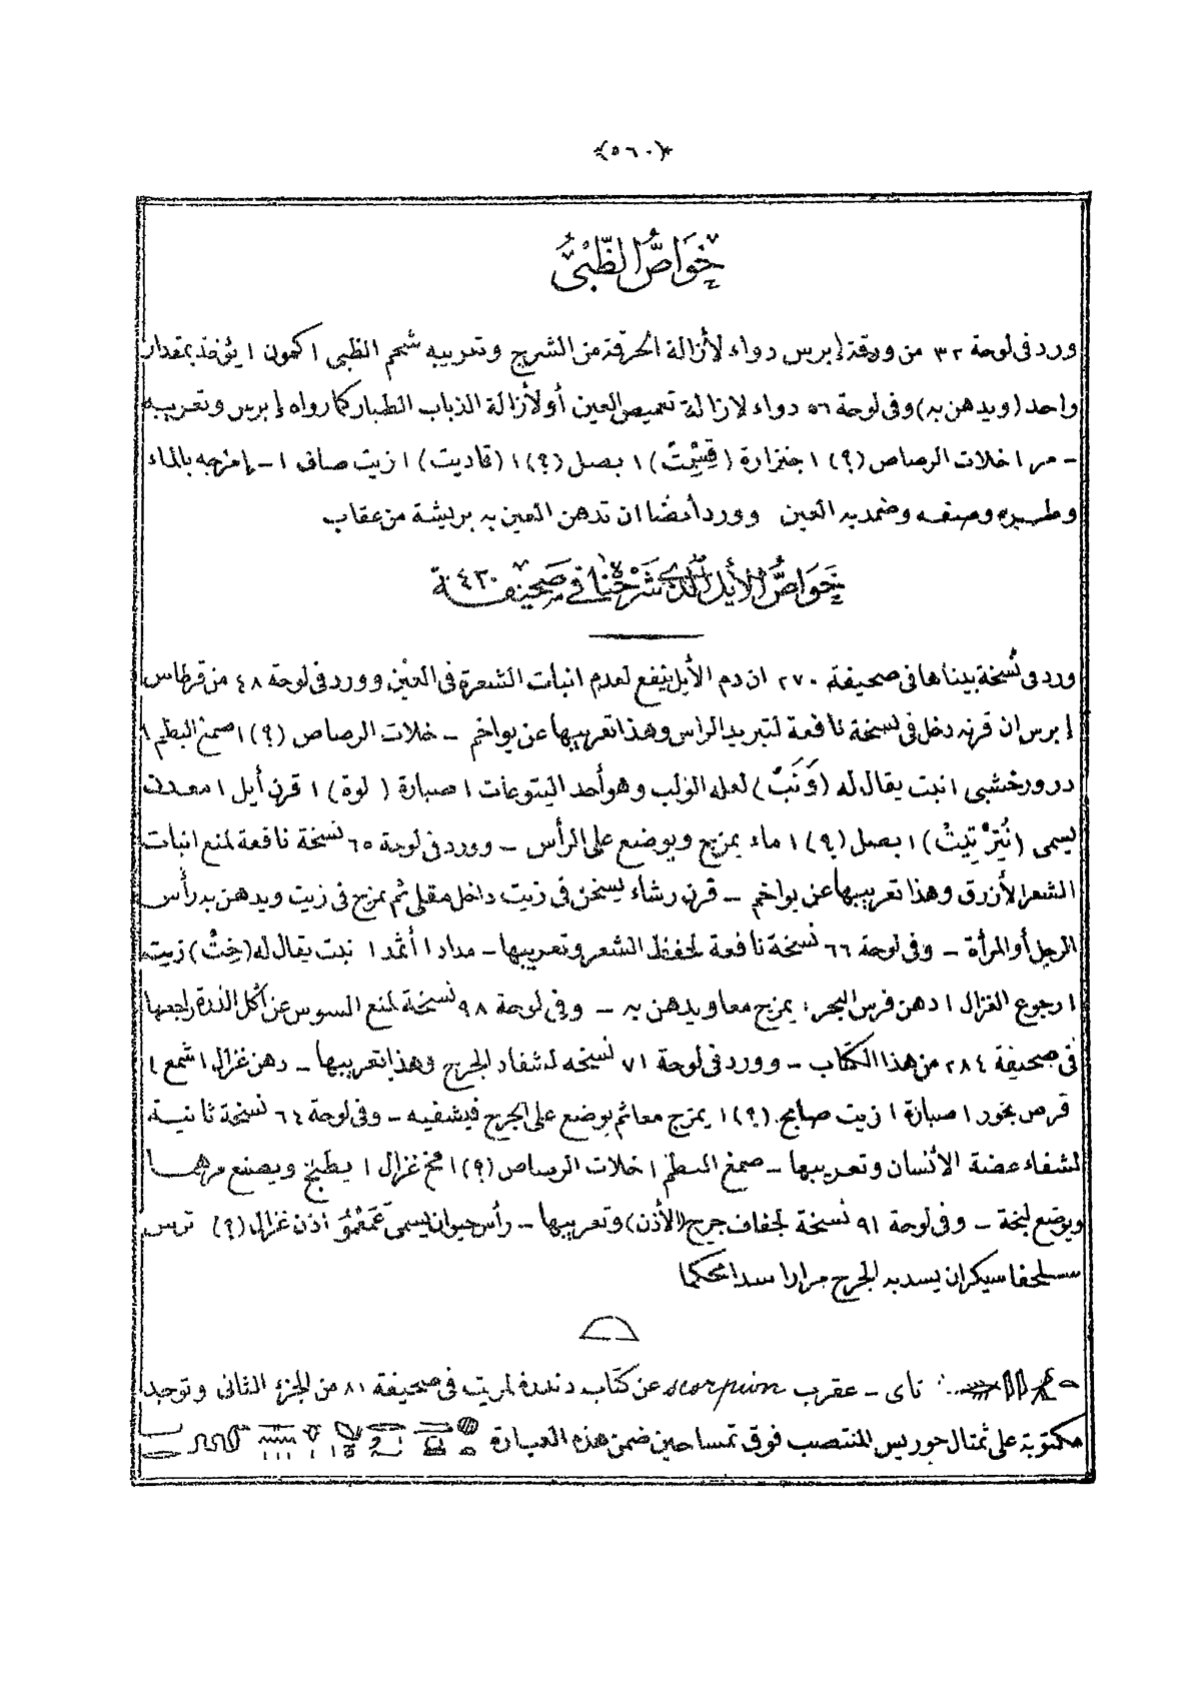 ﴿٥٦٠﴾
خَوَاصُّ الظَّبْىُّ
ورد فى لوحة ٣٢ من ورقة إبرس دواء لأزالة الحرقة من الشرج وتعريبه شحم الظبى ١ كمون ١ يؤخذ بمقدار
واحد (ويدهن به) وفى لوحة ٥٦ دواء لازالة تعميص العين أو لأزالة الذباب الطيار كما رواه إبرس وتعريبه
ـ مر ١ خلات الرصاص (؟) ١ جنزارة (قِسِمْتْ) ١ بصل (؟) ١ (قاديت) ١ زيت صاف ١ ـ إمزجه بالماء
و وصفه وضمد به العين وورد أيضا ان تدهن العين به بريشة من عقاب
خَوَاصُّ الأيل الذى شَرَحْنَاه فى صَحِيفَة ٤٣٠
ورد فى نُسخة بيناها فى صحيفة ٢٧٠ ان دم الأيل ينفع لعدم انبات الشعرة فى العين وورد فى لوحة ٤٨ من قرطاس
إبرس ان قرنه دخل فى نسخة نافعة لتبريد الراس وهذا تعريبها عن يواخم ـ خلات الرصاص (؟) ١ صمغ البطم ١
در ورخشبى ١ نبت يقال له (وَنَبْ) لعله الولب وهو أحد اليتوعات ١ صبارة (لوة) ١ قرن أيل ١ معدن
يسمى (نُتِرْ تِيتْ) ١ بصل (؟) ١ ماء يمزج ويوضع على الرأس ـ وورد فى لوحة ٦٥ نسخة نافعة لمنع انبات
الشعر الأزرق وهذا تعريبها عن يواخم ـ قرن رشاء يسخن فى زيت داخل مقلى ثم يمزج فى زيت ويدهن به رأس
الرجل أو المرأة ـ وفى لوحة ٦٦ نسخة نافعة لحفظ الشعر وتعريبها ـ مداد ١ أثمد ١ نبت يقال له (خِتْ) زيت
١ رجوع الغزال ١ دهن فرس البحر ١ يمزج معا ويدهن به ـ وفى لوحة ٩٨ نسخة لمنع السوس عن أكل الذرة راجعها
فى صحيفة ٢٨٤ من هذا الكتاب ـ وورد فى لوحة ٧١ نسخه لشفاء الجرح وهذا تعريبها ـ دهن غزال ١ شمع ١
قرص بخور ١ صبارة ١ زيت (؟) ١ يمزج معا ثم يوضع على الجرح فيشفيه ـ وفى لوحة ٦٤ نسخة ثانية
لشفاء عضة الأنسان وتعريبها ـ صمغ البطم ١ خلات الرصاص (؟) ١ مخ غزال ١ يطبخ ويصنع مرهما
ويوضع لبخة ـ وفى لوحة ٩١ نسخة لجفاف جرح (الأذن) وتعريبها ـ رأس حيوان يسمى عَمْعَمُو أذن غزال (؟) ترس
سلحفا سيكران يسد به الجرح مرارا سدا محكما
تاى ـ عقرب scorpion عن كتاب دندره لمريت فى صحيفة ٨١ من الجزء الثانى وتوجد
مكتوبة على تمثال حوريس المنتصب فوق تمساحين ضمن هذه العبارة